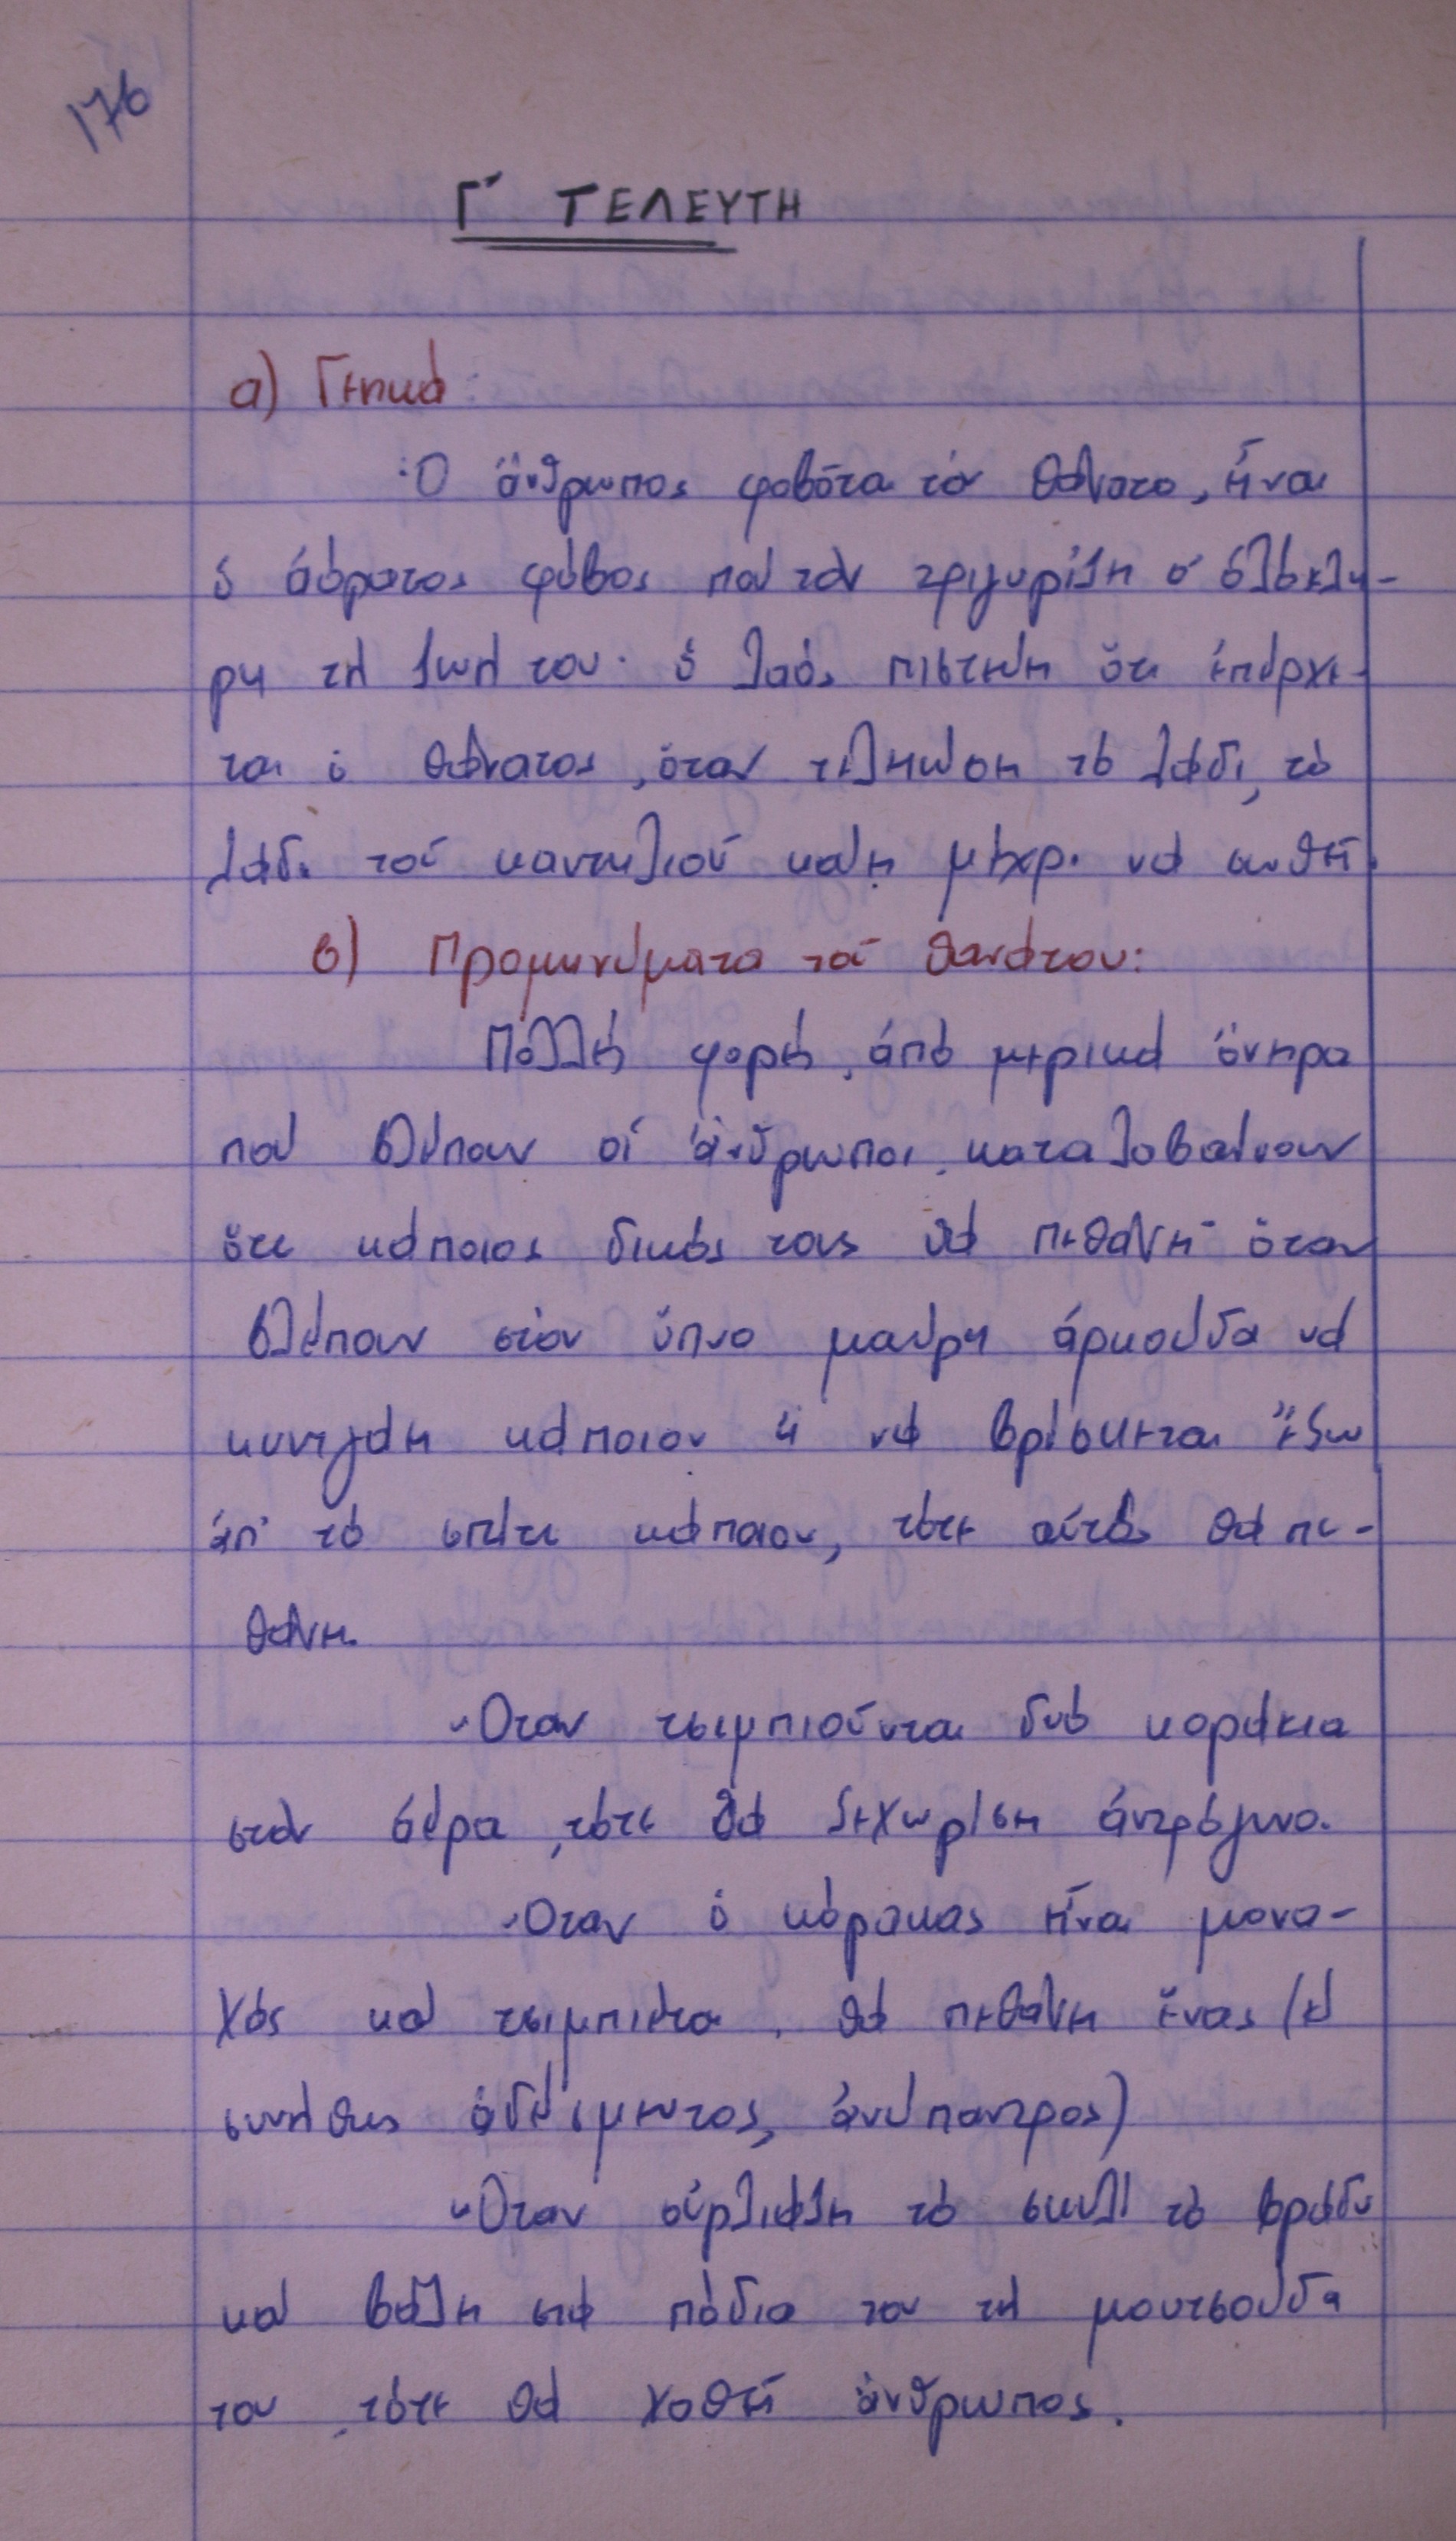 176
Γ΄ ΤΕΛΕΥΤΗ
α) Γενικά:
Ὁ ἄνθρωπος φοβᾶται τόν θάνατο, εἶναι
ὁ ἀόρατος φόβος πού τόν τριγυρίζει σ' ὁλόκλη-
ρη τή ζωή του. ὁ λαός πιστεύει ὅτι ἐπέρχε-
ται ὁ θάνατος, ὅταν τελειώσει τό λάδι, τό
λάδι τοῦ καντηλιοῦ καίει μέχρι νά σωθεῖ.
β) Προμηνύματα τοῦ θανάτου:
Πολλές φορές, ἀπό μερικά ὄνειρα
πού βλέπουν οἱ ἄνθρωποι, καταλαβαίνουν
ὅτι κάποιος δικός τους θά πεθάνει· ὅταν
βλέπουν στόν ὕπνο μαύρη ἀρκούδα νά
κυνηγάει κάποιον ἤ νά βρίσκεται ἔξω
ἀπ' τό σπίτι κάποιου, τότε αὐτός θά πε-
θάνει.
Ὅταν τσιμπιοῦνται δυό κοράκια
στόν ἀέρα, τότε θά ξεχωρίσει ἀντρόγυνο.
Ὅταν ὁ κόρακας εἶναι μονα-
χός καί τσιμπιέται, θά πεθάνει ἕνας (
συνήθως ἀδέσμευτος, ἀνύπαντρος)
Ὅταν οὐρλιάζει τό σκυλί τό βράδυ
καί βάζει στά πόδια του τή μουτσούδα
του, τότε θά χαθεῖ ἄνθρωπος.